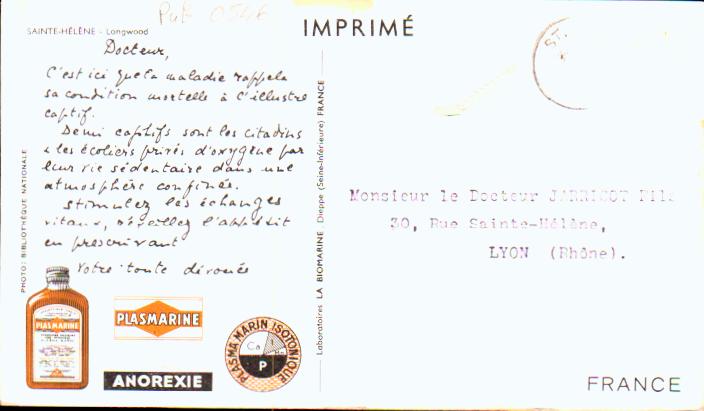 Pub 0546
SAINTE-HÉLÈNE - Longwood
IMPRIMÉ
ST.
Docteur,
C'est ici que la maladie rappela
sa condition mortelle à l'illustre
captif.
Demi captifs sont les citadins
& les écoliers privés d'oxygène par
leur vie sédentaire dans une
atmosphère confinée.
Stimulez les échanges
vitaux, réveillez l'appétit
en prescrivant
Votre toute dévouée
PHOTO: BIBLIOTHÈQUE NATIONALE
PLASMARINE
PLASMARINE
ANOREXIE
PLASMA MARIN ISOTONIQUE
Ca
P
Laboratoires LA BIOMARINE, Dieppe (Seine-Inférieure) FRANCE
Monsieur le Docteur JARRICOT Fils
30, Rue Sainte-Hélène,
LYON (Rhône).
FRANCE